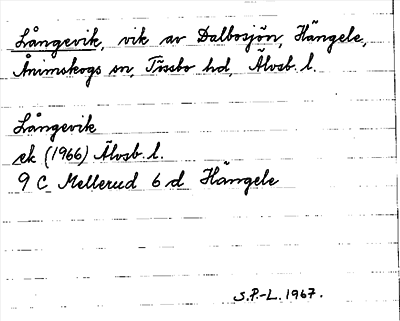 Långevik, vik av Dalbosjön, Hängele,
Ånimskogs sn, Tössbo hd, Älvsb. l.
Långevik
ek (1966) Älvsb. l.
9 C Mellerud 6 d Hängele
S.P.-L. 1967.